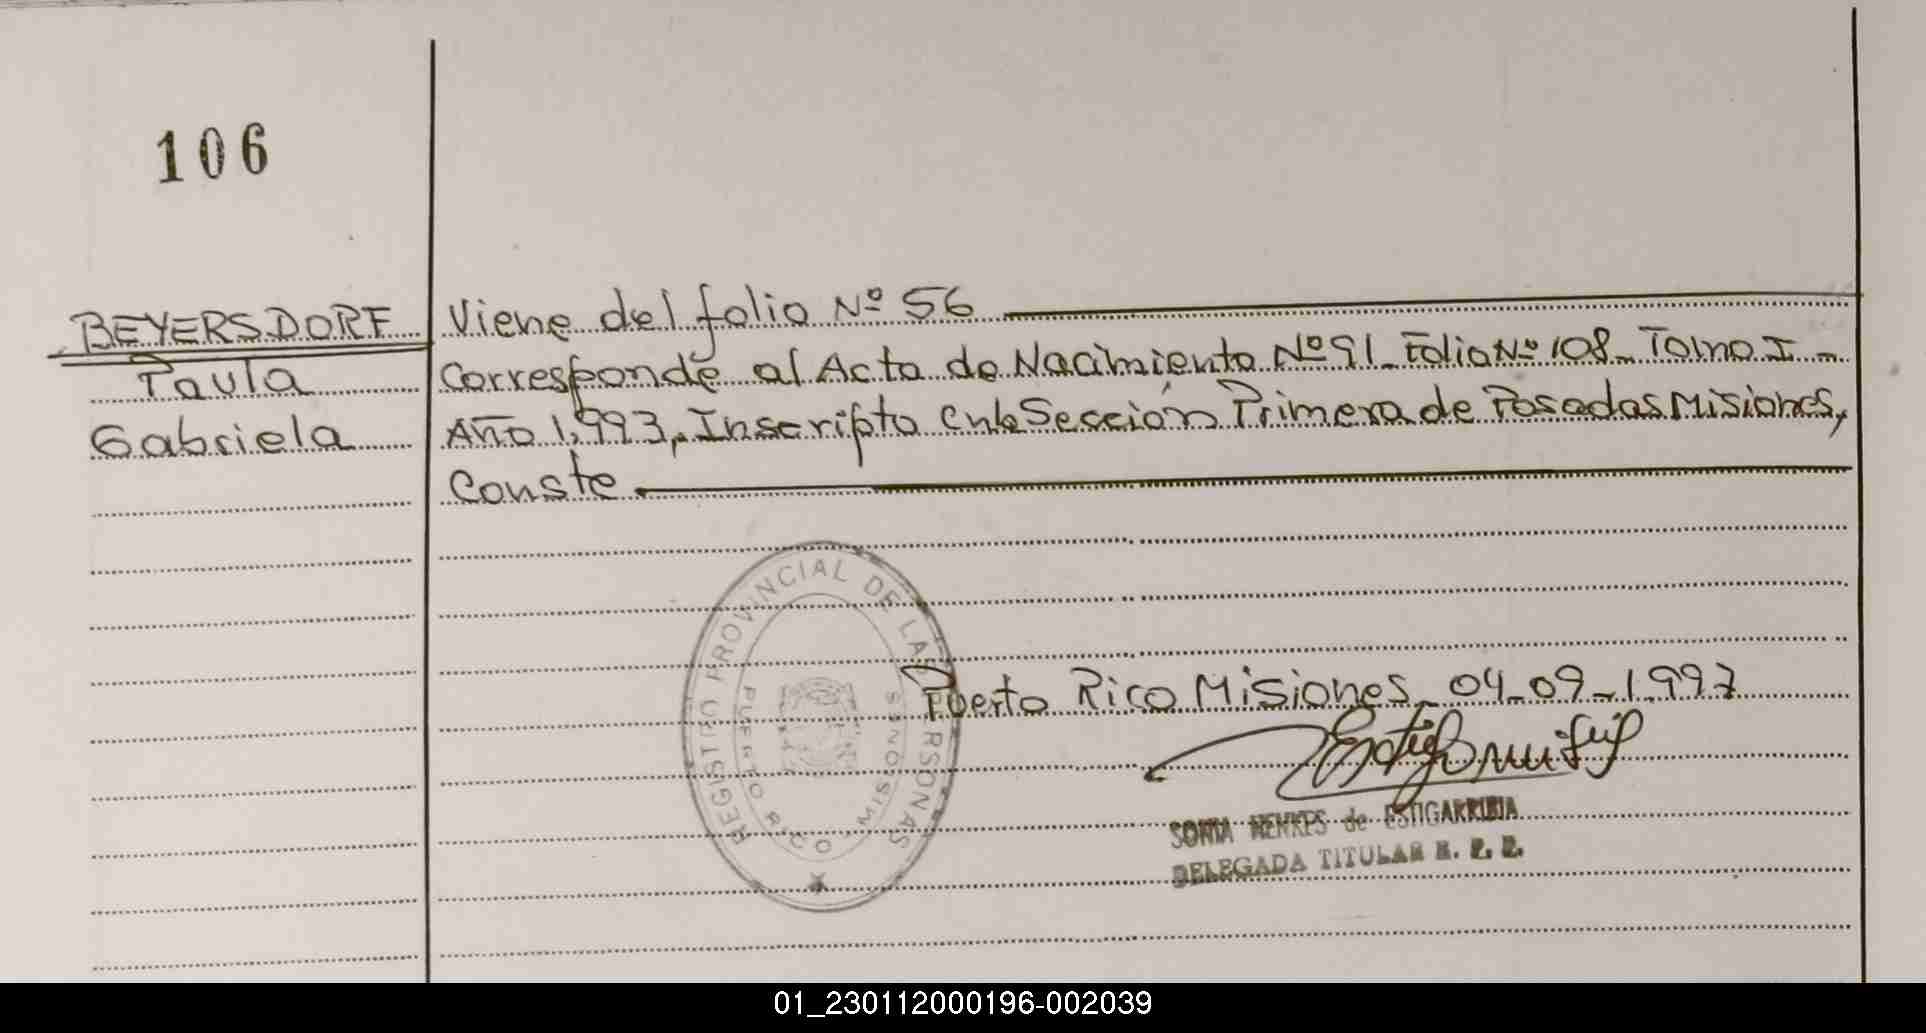 106
BEYERSDORF
Paula
Gabriela
Viene del folio Nº 56
Corresponde al Acta de Nacimiento Nº 91_ Folio Nº 108_ Tomo I _
Año 1,993, Inscripto en la Sección Primera de Posadas Misiones,
Conste
REGISTRO PROVINCIAL DE LAS PERSONAS
PUERTO RICO MISIONES
Puerto Rico Misiones_ 04_09_1.997
SONIA HENKES de ESTIGARRIBIA
DELEGADA TITULAR R. P. P.
01_230112000196-002039